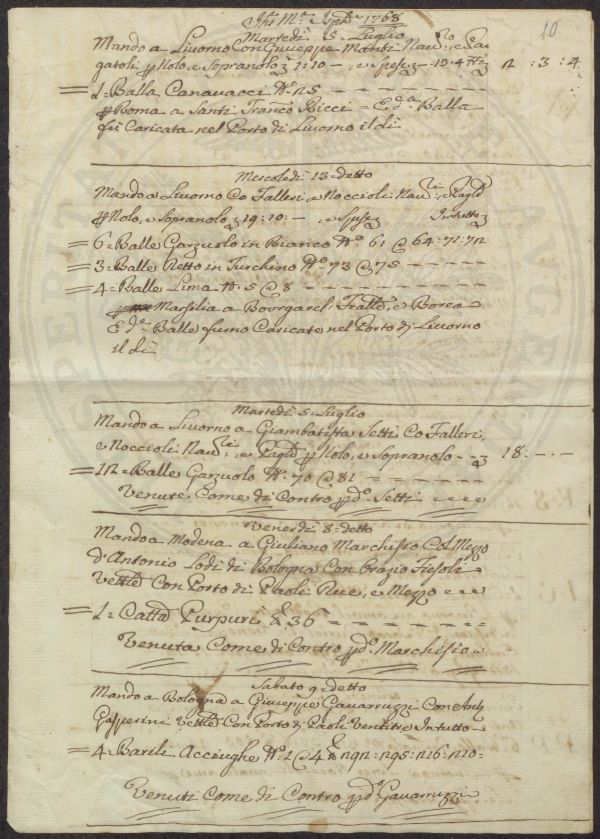 1768
10
Martedì 5. Luglio
Mando a Livorno Con Giuseppe Navi. e
gatoli Nolo, e Sopranolo 1:10 — e Spese 12 : 3 : 4
1 = Balla Canavacci N.o 25
Roma a Santi Franco Ricci — E d.a Balla
fù Caricata nel Porto di Livorno il dì
Mercoledì 13 detto
Mando a Livorno Co Falleri, e Noccioli Navi.
Nolo, e Sopranolo 19:10:— e Spese In tutto
6 = Balle Garzuolo in Bianco N.o 61 @ 64:71:72
3 = Balle Netto in Turchino N.o 73 @ 75
4 = Balle Lima N. 5 @ 8
Marsilia a Bourgarel, Fratt.o, e Borea
E d.e Balle furno Caricate nel Porto di Livorno
il dì
Martedì 5. Luglio
Mando a Livorno a Giambatista Setti Co Falleri,
e Noccioli Navi. e Nolo, e Sopranolo 18. — . —
12 = Balle Garzuolo N. 70 @ 81
Venute Come di Contro d.o Setti
Venerdì 8. detto
Mando a Modena a Giuliano Marchisio Col Mezzo
d'Antonio Lodi di Bologna Con Orazio Fiesoli
Vett.e Con Porto di Paoli Due, e Mezzo
1 = Catt.a Purpuri 36
Venuta Come di Contro d.o Marchisio
Sabato 9. detto
Mando a Bologna a Giuseppe Gavarruzzi Con
Gasperini Vett.e Con Porto di Paoli Ventitre In tutto
4 = Barili Acciughe N.o 1 @ 4 292 : 295 : 216 : 210
Venuti Come di Contro d.o Gavarruzzi